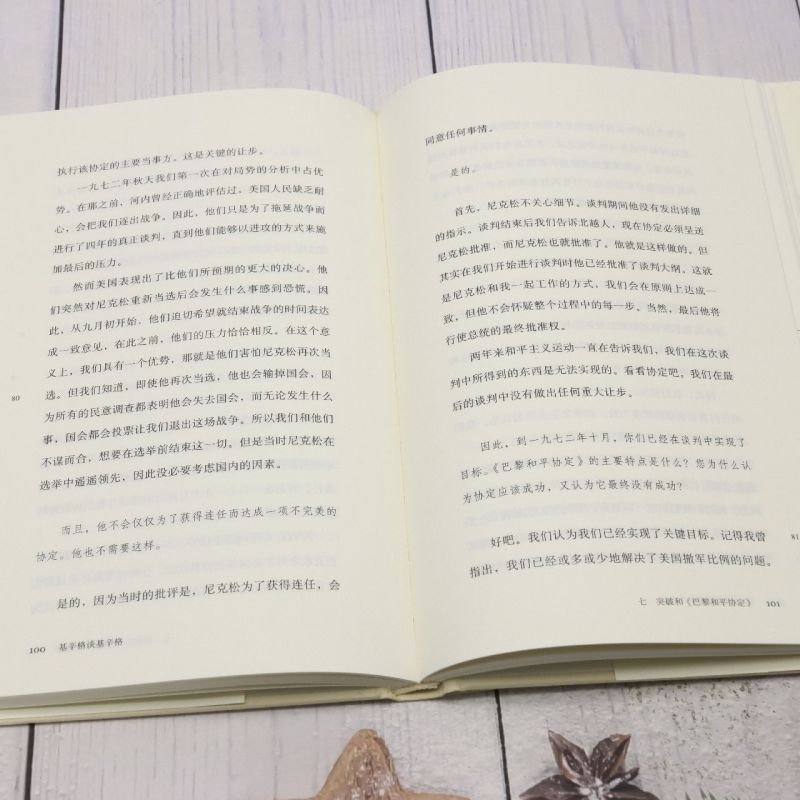 执行该协定的主要当事方。这是关键的让步。
一九七二年秋天我们第一次在对局势的分析中占优
势。在那之前，河内曾经正确地评估过，美国人民缺乏耐
心，会把我们逐出战争。因此，他们只是为了拖延战争而
进行了四年的真正谈判，直到他们能够以进攻的方式来施
加最后的压力。
然而美国表现出了比他们所预期的更大的决心。他
们突然对尼克松重新当选后会发生什么事感到恐慌。因
此，从九月初开始，他们迫切希望就结束战争的时间表达
成一致意见，在此之前，他们的压力恰恰相反。在这个意
义上，我们具有一个优势，那就是他们害怕尼克松再次当
选。但我们知道，即使他再次当选，他也会输掉国会，因
80
为所有的民意调查都表明他会失去国会，而无论发生什么
事，国会都会投票让我们退出这场战争。所以我们和他们
不谋而合，想要在选举前结束这一切。但是当时尼克松在
选举中遥遥领先，因此没必要考虑国内的因素。
而且，他不会仅仅为了获得连任而达成一项不完美的
协定。他也不需要这样。
是的，因为当时的批评是，尼克松为了获得连任，会
100 基辛格谈基辛格
同意任何事情。
是的。
首先，尼克松不关心细节。谈判期间他没有发出详细
的指示。谈判结束后我们告诉北越人，现在协定必须呈送
尼克松批准，而尼克松也就批准了。他就是这样做的。但
其实在我们开始进行谈判时他已经批准了谈判大纲。这就
是尼克松和我一起工作的方式，我们会在原则上达成一
致，但他不会怀疑整个过程中的每一步。当然，最后他将
行使总统的最终批准权。
两年来和平主义运动一直在告诉我们，我们在这次谈
判中所得到的东西是无法实现的。看看协定吧。我们在最
后的谈判中没有做出任何重大让步。
因此，到一九七二年十月，你们已经在谈判中实现了
目标。《巴黎和平协定》的主要特点是什么？您为什么认
为协定应该成功，又认为它最终没有成功？
好吧。我们认为我们已经实现了关键目标。记得我曾
81
指出，我们已经或多或少地解决了美国撤军比例的问题。
七 突破和《巴黎和平协定》 101